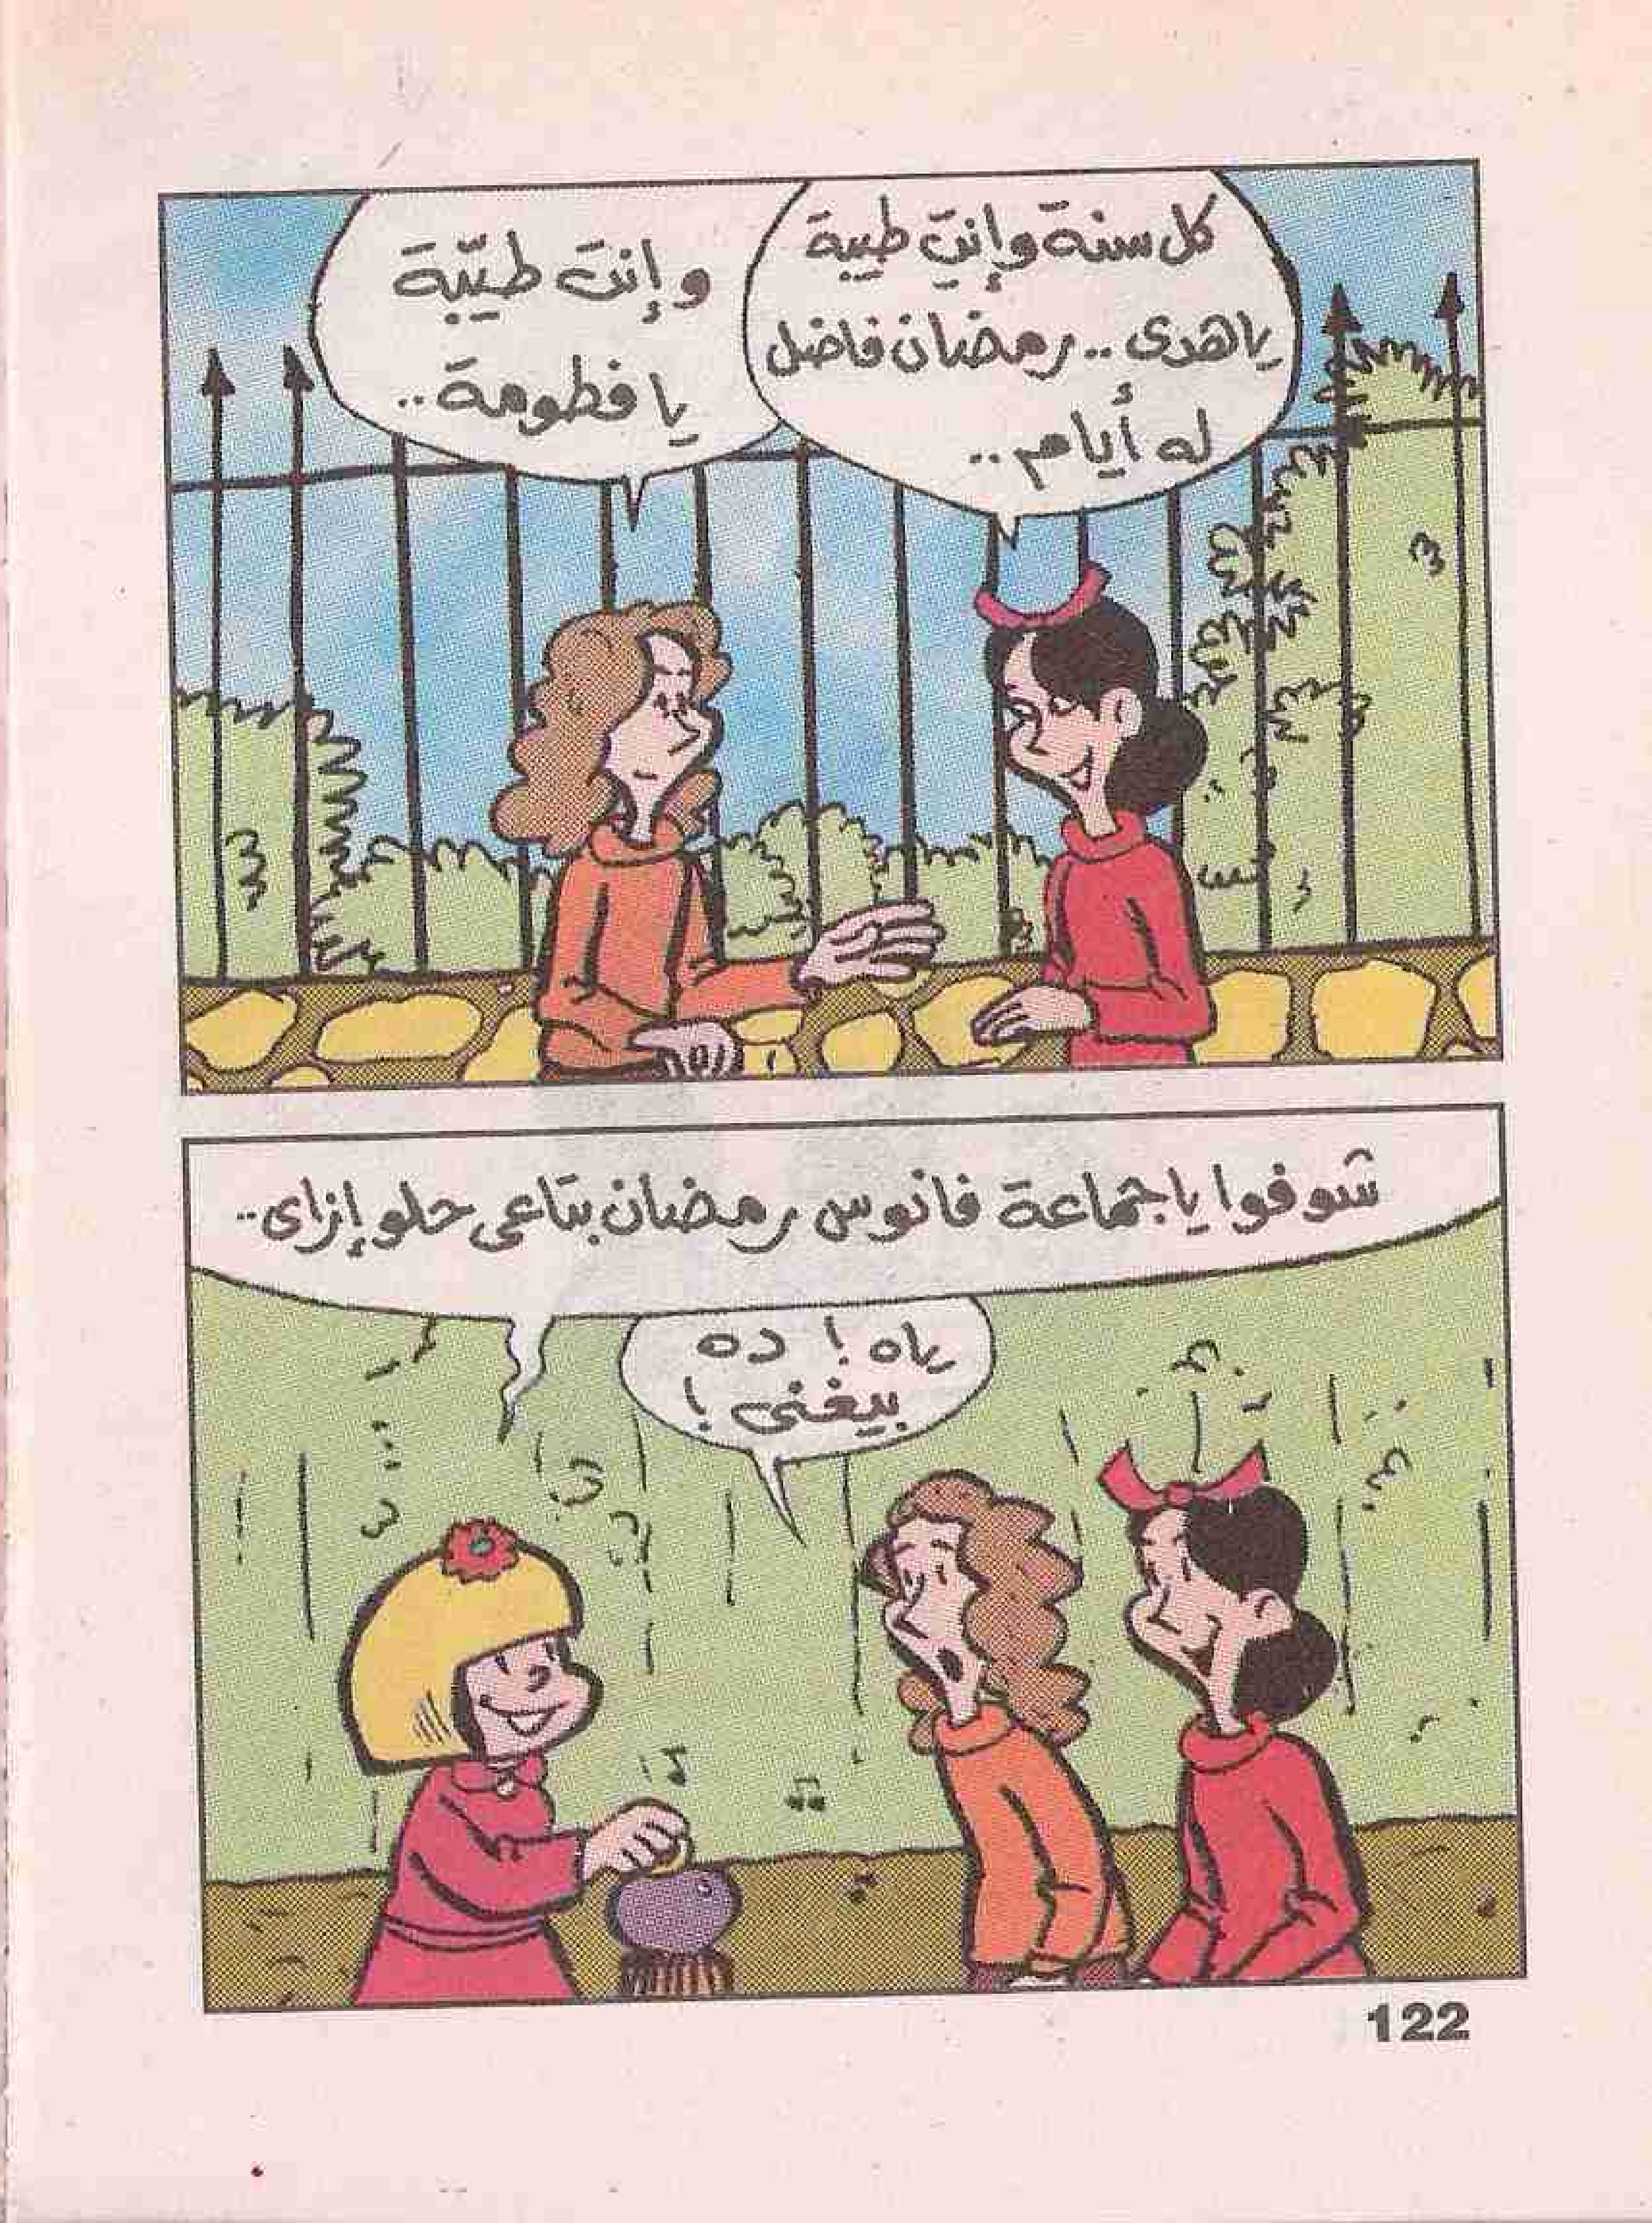 كل سنة وإنتِ طيبة
ياهدى.. رمضان فاضل
له أيام..
وإنتِ طيّبة
يا فطومة..
شوفوا ياجماعة فانوس رمضان بتاعى حلو إزاى..
ياه! ده
بيغنى!
122